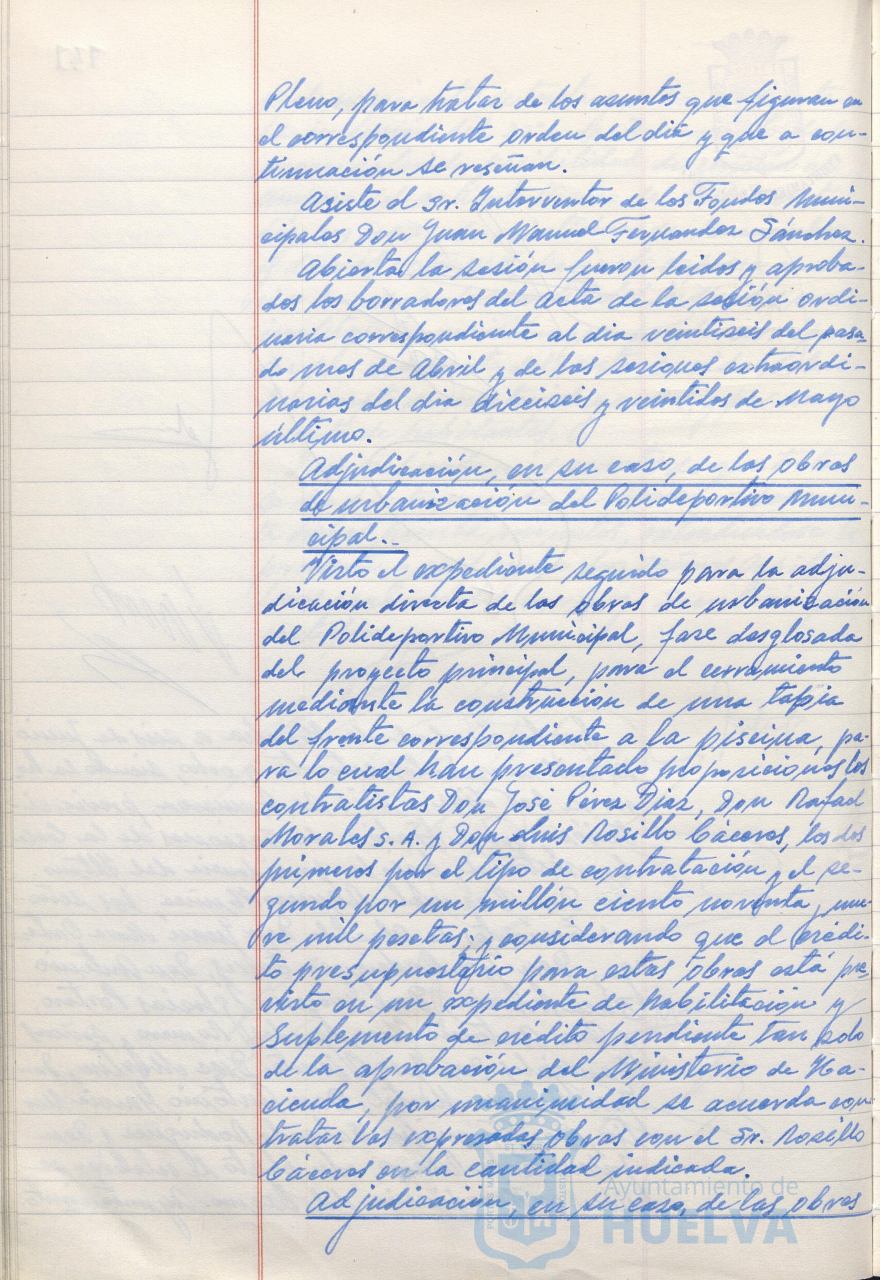 Pleno, para tratar de los asuntos que figuran en
el correspondiente orden del dia y que a con-
tinuación se reseñan.
Asiste el Sr. Interventor de los Fondos Muni-
cipales Don Juan Manuel Fernandez Sánchez.
Abierta la sesión fueron leidos y aproba-
dos los borradores del acta de la sesión ordi-
naria correspondiente al dia veintiseis del pasa-
do mes de Abril y de las sesiones extraordi-
narias del dia dieciseis y veintidos de Mayo
último.
Adjudicación, en su caso, de las obras
de urbanización del Polideportivo Muni-
cipal.-
Visto el expediente seguido para la adju-
dicación directa de las obras de urbanización
del Polideportivo Municipal, fase desglosada
del proyecto principal, para el cerramiento
mediante la construcción de una tapia
del frente correspondiente a la piscina, pa-
ra lo cual han presentado proposiciones los
contratistas Don José Pérez Diaz, Don Rafael
Morales S.A. y Don Luis Rosillo Cáceres, los dos
primeros por el tipo de contratación y el se-
gundo por un millón ciento noventa y nue-
ve mil pesetas; y considerando que el crédi-
to presupuestario para estas obras está pre-
visto en un expediente de habilitación y
suplemento de crédito pendiente tan solo
de la aprobación del Ministerio de Ha-
cienda, por unanimidad se acuerda con-
tratar las expresadas obras con el Sr. Rosillo
Cáceres en la cantidad indicada.
Adjudicación, en su caso, de las obras
Ayuntamiento de
HUELVA